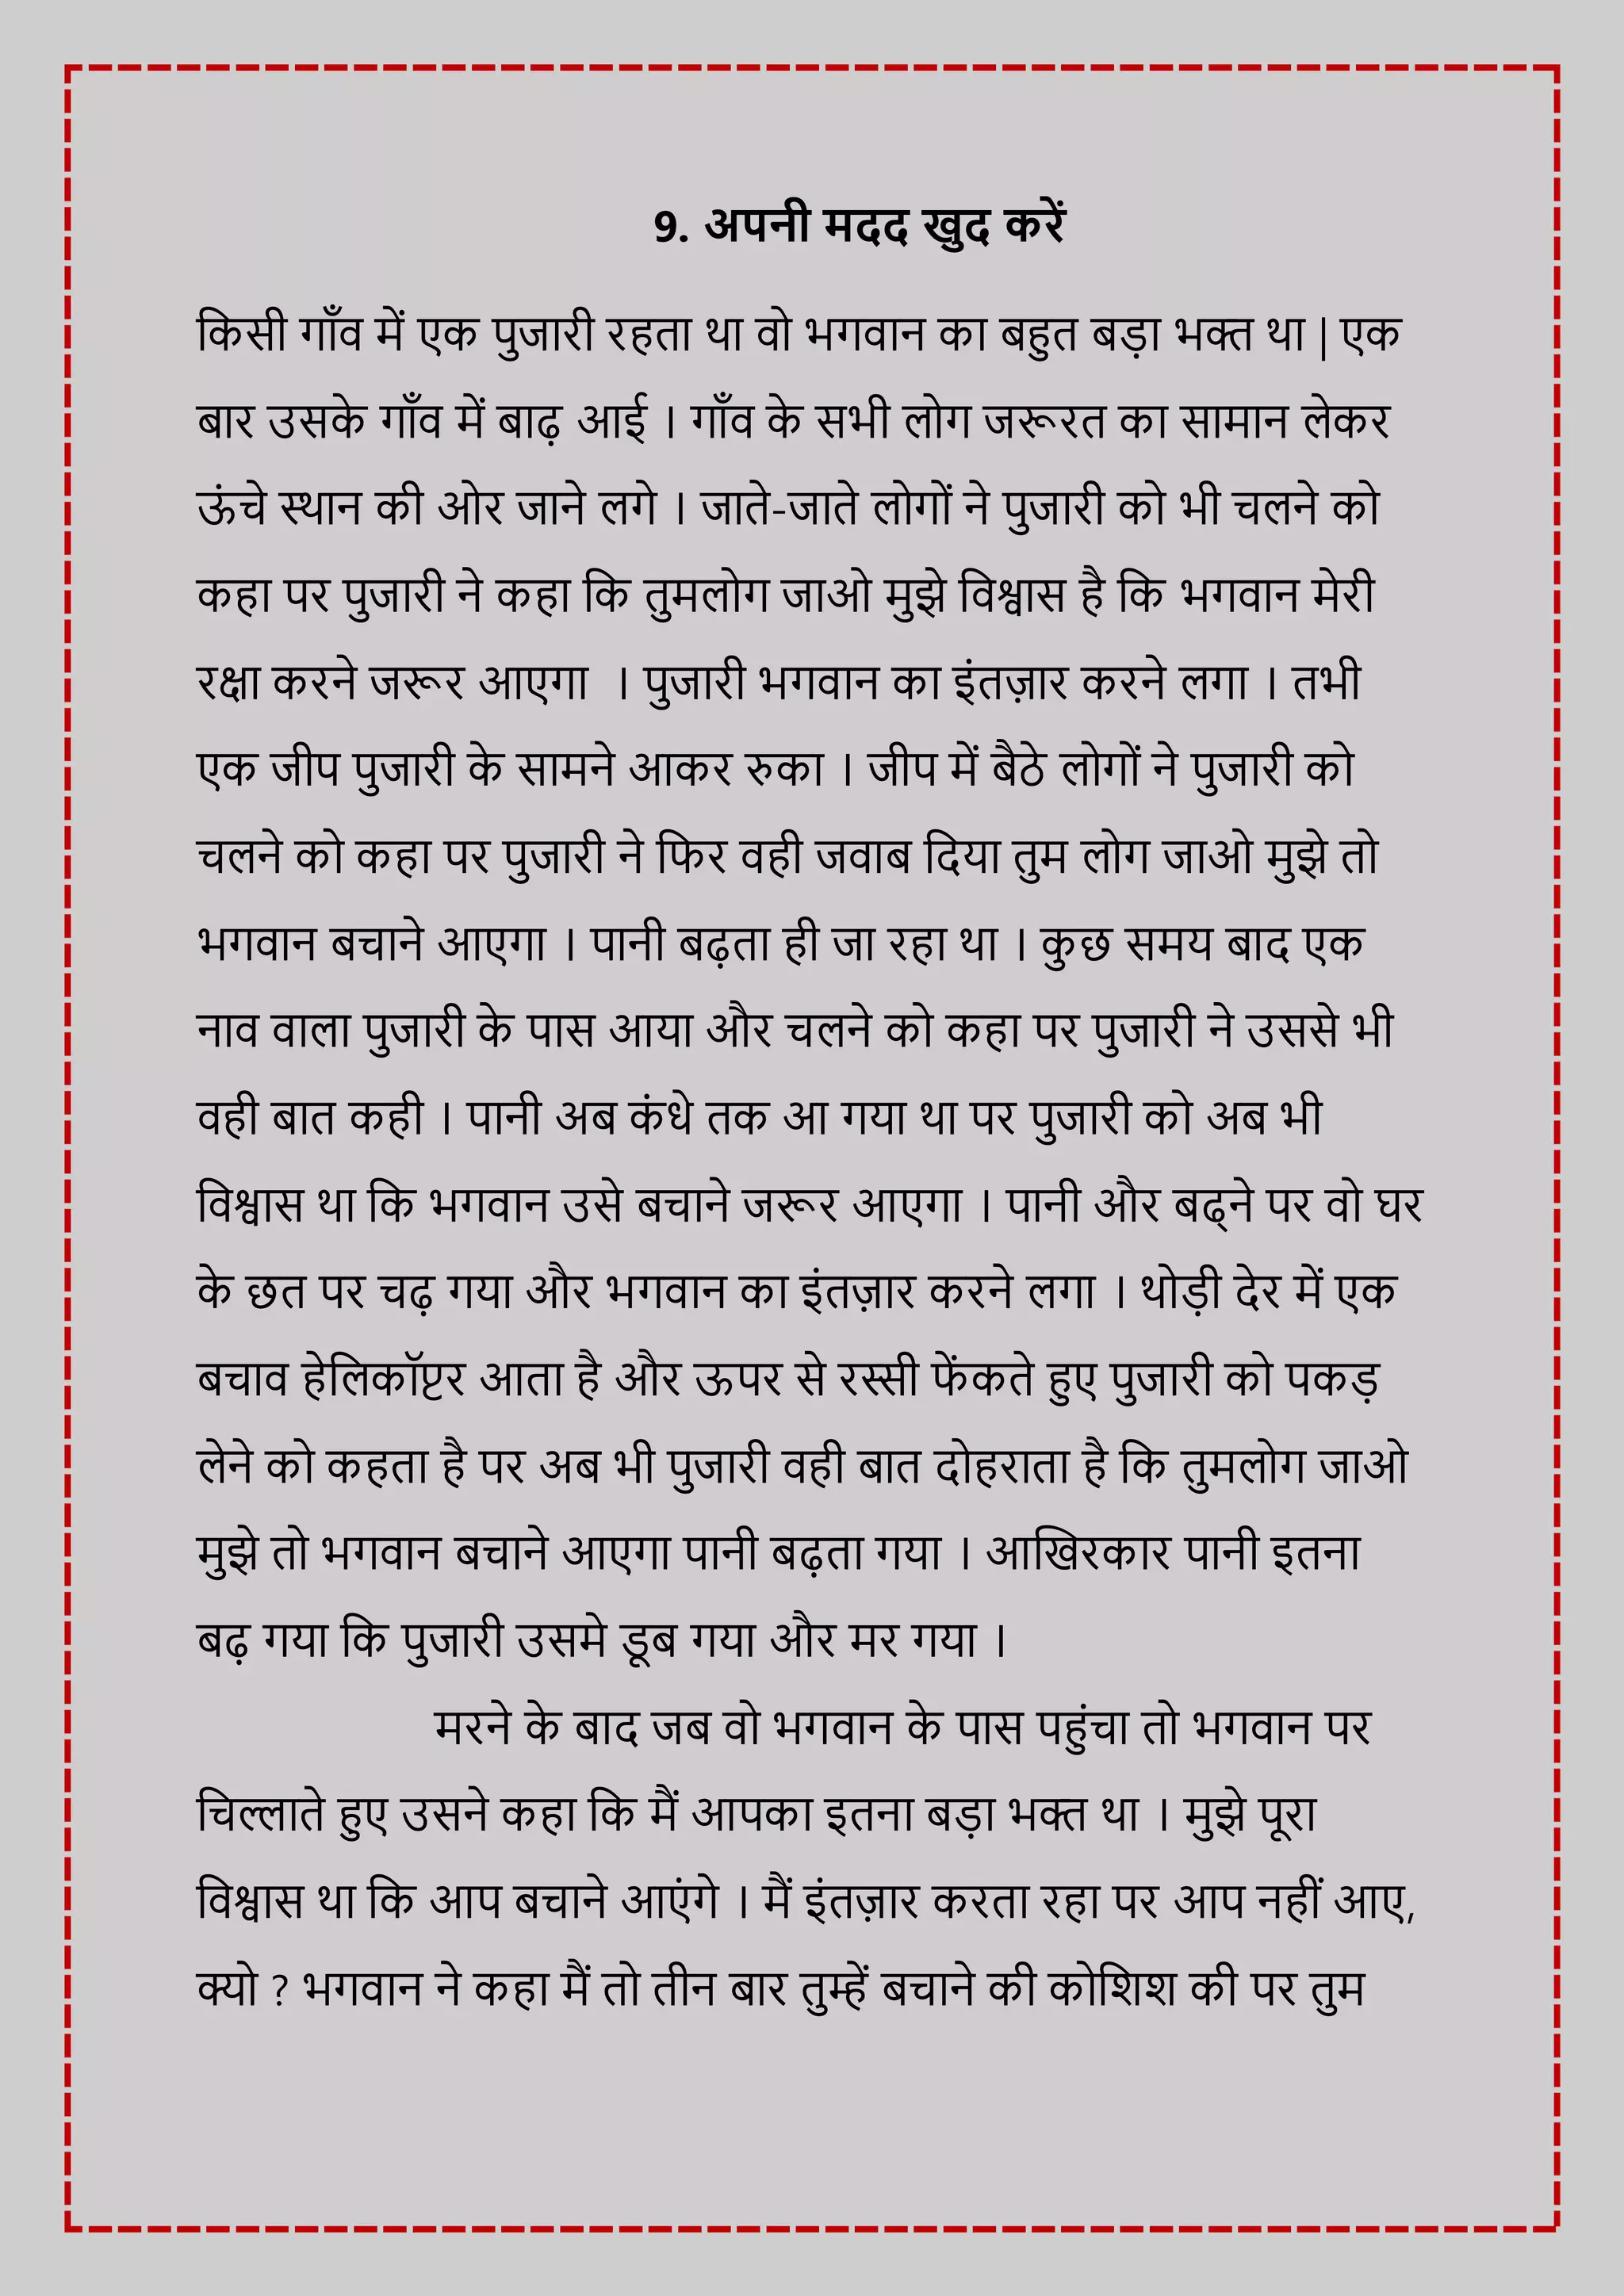 9. अपनी मदद खुद करें
किसी गाँव में एक पुजारी रहता था वो भगवान का बहुत बड़ा भक्त था | एक
बार उसके गाँव में बाढ़ आई । गाँव के सभी लोग जरूरत का सामान लेकर
ऊंचे स्थान की ओर जाने लगे । जाते-जाते लोगों ने पुजारी को भी चलने को
कहा पर पुजारी ने कहा कि तुमलोग जाओ मुझे विश्वास है कि भगवान मेरी
रक्षा करने जरूर आएगा । पुजारी भगवान का इंतज़ार करने लगा । तभी
एक जीप पुजारी के सामने आकर रुका । जीप में बैठे लोगों ने पुजारी को
चलने को कहा पर पुजारी ने फिर वही जवाब दिया तुम लोग जाओ मुझे तो
भगवान बचाने आएगा । पानी बढ़ता ही जा रहा था । कुछ समय बाद एक
नाव वाला पुजारी के पास आया और चलने को कहा पर पुजारी ने उससे भी
वही बात कही । पानी अब कंधे तक आ गया था पर पुजारी को अब भी
विश्वास था कि भगवान उसे बचाने जरूर आएगा । पानी और बढ्ने पर वो घर
के छत पर चढ़ गया और भगवान का इंतज़ार करने लगा । थोड़ी देर में एक
बचाव हेलिकॉप्टर आता है और ऊपर से रस्सी फेंकते हुए पुजारी को पकड़
लेने को कहता है पर अब भी पुजारी वही बात दोहराता है कि तुमलोग जाओ
मुझे तो भगवान बचाने आएगा पानी बढ़ता गया । आखिरकार पानी इतना
बढ़ गया कि पुजारी उसमे डूब गया और मर गया ।
मरने के बाद जब वो भगवान के पास पहुंचा तो भगवान पर
चिल्लाते हुए उसने कहा कि मैं आपका इतना बड़ा भक्त था । मुझे पूरा
विश्वास था कि आप बचाने आएंगे । मैं इंतज़ार करता रहा पर आप नहीं आए,
क्यो ? भगवान ने कहा मैं तो तीन बार तुम्हें बचाने की कोशिश की पर तुम